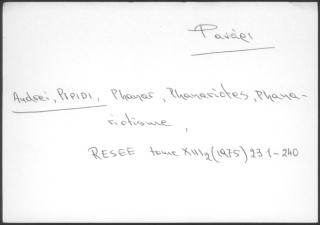 Φανάρι
Andrei, PIPIDI, Phanar, Phanariotes, Phana-
riotisme,
RESEE tome XIII/2 (1975) 231-240